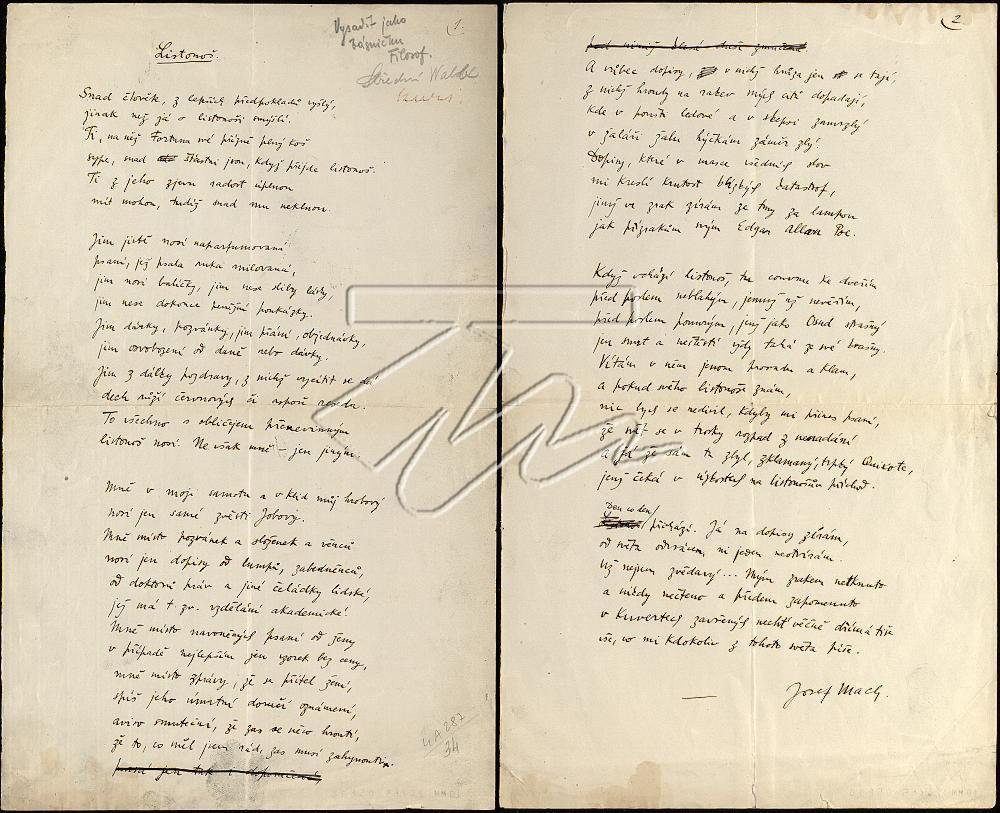 1.
Vysadit jako
básničku
Filosof.
Střední
Listonoš.
Snad člověk, z lepších předpokladů vyšlý,
jinak než já o listonoši smýšlí.
Ti, na něž Fortuna své přízně plný koš
sype, snad šťastni jsou, když přijde listonoš.
Ti z jeho zjevu radost úplnou
mít mohou, tudíž snad mu neklnou.
Jim jistě nosí naparfumovaná
psaní, jež psala ruka milovaná,
jim nosí balíčky, jim nese sliby lásky,
jim nese dokonce peněžní poukázky.
Jim dárky, pozvánky, jim přání, objednávky,
jim osvobození od daně nebo dávky.
Jim z dálky pozdravy, z nichž vycítit se dá
dech růží červonových či aspoň reseda.
To všechno s obličejem přenevinným
listonoš nosí. Ne však mně – jen jiným.
Mně v moji samotu a v klid můj hrobový
nosí jen samé zvěsti Jobovy.
Mně místo pozvánek a složenek a věnců
nosí jen dopisy od lumpů, zabedněnců,
od doktorů práv a jiné čeládky lidské,
jež má t. zv. vzdělání akademické.
Mně místo navoněných psaní od ženy
v případě nejlepším jen vzorek bez ceny,
mně místo zprávy, že se přítel žení,
spíš jeho úmrtní doručí oznámení,
aviso smuteční, že zas se něco hroutí,
že to, co měl jsem rád, zas musí zahynouti.
4A 287
34
2
A vůbec dopisy, v nichž hrůza jen se tají,
z nichž hroudy na rakev mých citů dopadají,
kde v poušti ledové a v skepsi zamrzlý
v žaláři žalu hýčkám záměr zlý.
Dopisy, které v masce všedních slov
mi kreslí krutost blízkých katastrof,
jimž ve zrak zírám ze tmy za lampou
jak přízrakům svým Edgar Allan Poe.
Když vchází listonoš, tu couvnu ke dveřím
před poslem neblahým, jemuž už nevěřím,
před poslem ponurým, jenž jako Osud strašný
jen smrt a neštěstí vždy tahá ze své brašny.
Vítám v něm jenom proradu a klam,
a pokud svého listonoše znám,
nic bych se nedivil, kdyby mi přines psaní,
že svět se v trosky rozpad z nenadání
a já že sám tu zbyl, zklamaný, trpký Quixote,
jenž čeká v úzkostech na listonošův příchod.
Den co den
přichází. Já na dopisy zírám,
od světa odvrácen, ni jeden neotvírám.
Už nejsem zvědavý... Mým zrakem netknuto
a nikdy nečteno a předem zapomenuto
v kuvertech zavřených nechť věčně dřímá tiše
vše, co mi kdokoliv z tohoto světa píše.
Josef Mach.